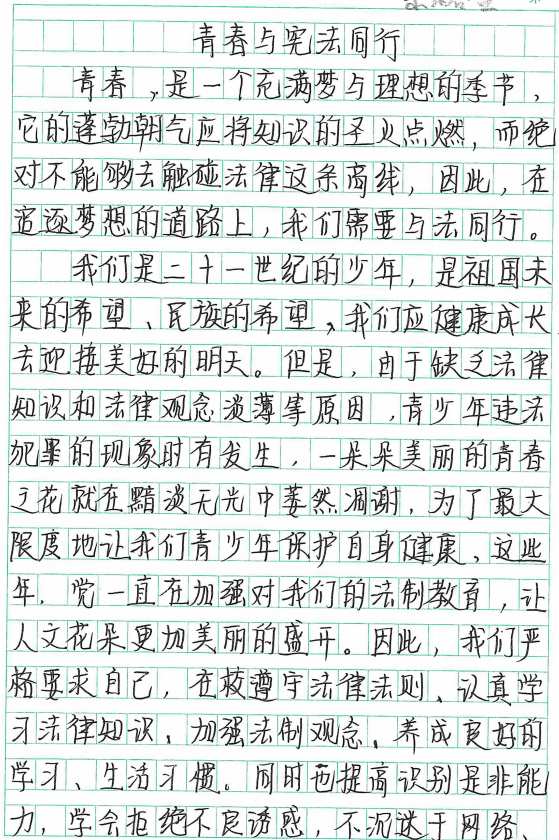 青春与宪法同行
青春，是一个充满梦与理想的季节，
它的蓬勃朝气应将知识的圣火点燃，而绝
对不能够去触碰法律这条高线，因此，在
追逐梦想的道路上，我们需要与法同行。
我们是二十一世纪的少年，是祖国未
来的希望、民族的希望，我们应健康成长
去迎接美好的明天。但是，由于缺乏法律
知识和法律观念淡薄等原因，青少年违法
犯罪的现象时有发生，一朵朵美丽的青春
之花就在黯淡无光中萎然凋谢，为了最大
限度地让我们青少年保护自身健康，这些
年，党一直在加强对我们的法制教育，让
人文花朵更加美丽的盛开。因此，我们严
格要求自己，在校遵守法律法则、认真学
习法律知识、加强法制观念、养成良好的
学习、生活习惯。同时也提高识别是非能
力，学会拒绝不良诱惑，不沉迷于网络、